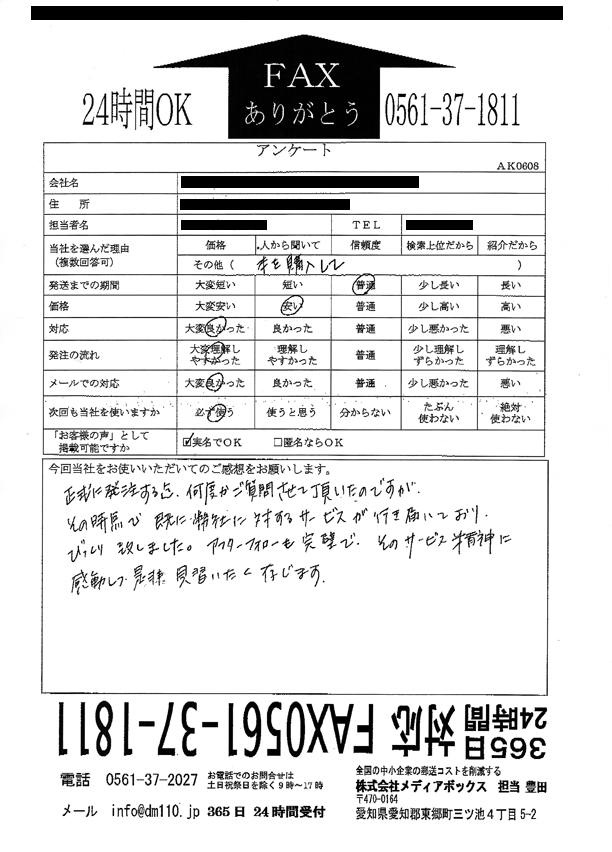 FAX
ありがとう
24時間OK
0561-37-1811
アンケート
AK0608
会社名
住 所
担当者名 TEL
当社を選んだ理由
(複数回答可)
価格 人から聞いて 信頼度 検索上位だから 紹介だから
その他( 本を購入して )
発送までの期間 大変短い 短い 普通 少し長い 長い
価格 大変安い 安い 普通 少し高い 高い
対応 大変良かった 良かった 普通 少し悪かった 悪い
発注の流れ 大変理解しやすかった 理解しやすかった 普通 少し理解しずらかった 理解しずらかった
メールでの対応 大変良かった 良かった 普通 少し悪かった 悪い
次回も当社を使いますか 必ず使う 使うと思う 分からない たぶん使わない 絶対使わない
「お客様の声」として
掲載可能ですか
☑実名でOK □匿名ならOK
今回当社をお使いいただいてのご感想をお願いします。
正式に発注する迄、何度かご質問させて頂いたのですが、
その時点で既に弊社に対するサービスが行き届いており、
びっくり致しました。アフターフォローも完璧で、そのサービス精神に
感動して是非見習いたく存じます。
365日
24時間
対応 FAX0561-37-1811
電話 0561-37-2027 お電話でのお問合せは
土日祝祭日を除く9時～17時
メール info@dm110.jp 365日 24時間受付
全国の中小企業の郵送コストを削減する
株式会社メディアボックス 担当 豊田
〒470-0164
愛知県愛知郡東郷町三ツ池4丁目5-2